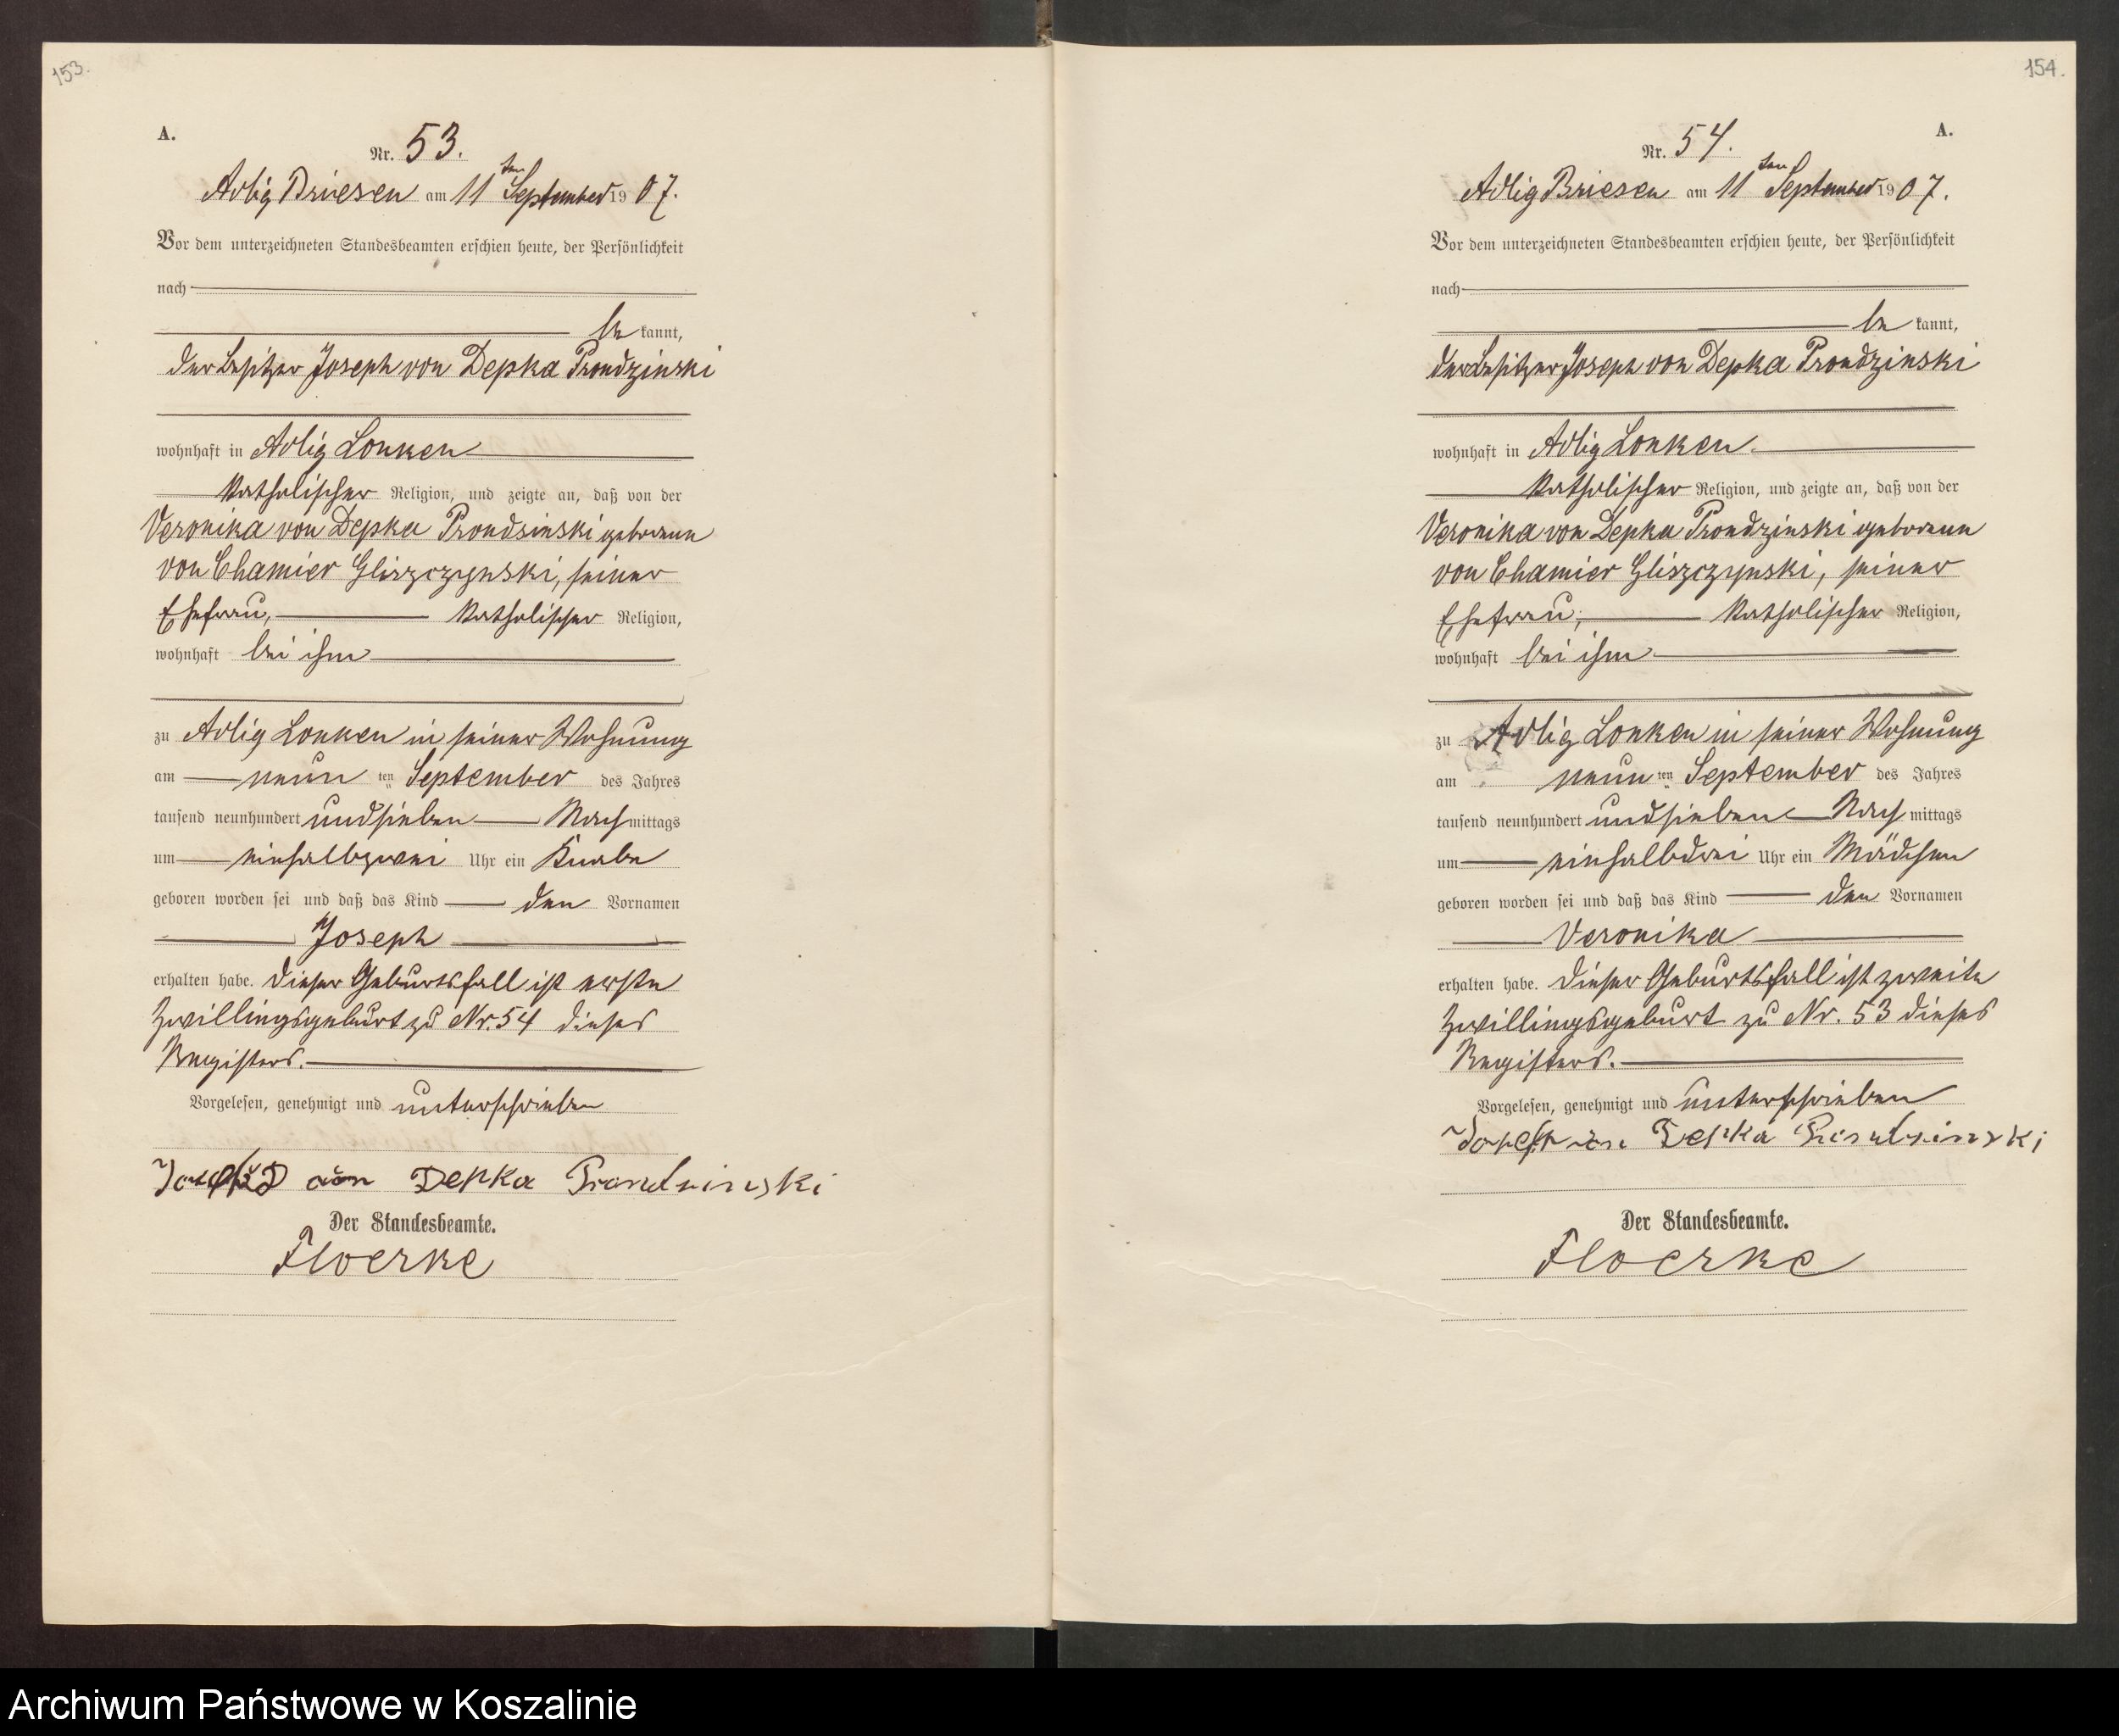 153.
A.
Nr. 53.
Adlig Briesen am 11ten September 1907.
Vor dem unterzeichneten Standesbeamten erschien heute, der Persönlichkeit
nach
be kannt,
der Besitzer Joseph von Depka Prondzinski
wohnhaft in Adlig Lonken
katholischer Religion, und zeigte an, daß von der
Veronika von Depka Prondsinski geborene
von Chamier Gliszczynski, seiner
Ehefrau, katholischer Religion,
wohnhaft bei ihm
zu Adlig Lonken in seiner Wohnung
am neun ten September des Jahres
tausend neunhundert und sieben Nach mittags
um einhalbzwei Uhr ein Knabe
geboren worden sei und daß das Kind den Vornamen
Joseph
erhalten habe. Dieser Geburtsfall ist erste
Zwillingsgeburt zu Nr. 54 dieses
Registers.
Vorgelesen, genehmigt und unterschrieben
Joseph von Depka Prondzinski
Der Standesbeamte.
Floerke
154.
A.
Nr. 54.
Adlig Briesen am 11ten September 1907.
Vor dem unterzeichneten Standesbeamten erschien heute, der Persönlichkeit
nach
be kannt,
der Besitzer Joseph von Depka Prondzinski
wohnhaft in Adlig Lonken
katholischer Religion, und zeigte an, daß von der
Veronika von Depka Prondzinski geborene
von Chamier Gliszczynski, seiner
Ehefrau, katholischer Religion,
wohnhaft bei ihm
zu Adlig Lonken in seiner Wohnung
am neun ten September des Jahres
tausend neunhundert und sieben Nach mittags
um einhalbdrei Uhr ein Mädchen
geboren worden sei und daß das Kind den Vornamen
Veronika
erhalten habe. Dieser Geburtsfall ist zweite
Zwillingsgeburt zu Nr. 53 dieses
Registers.
Vorgelesen, genehmigt und unterschrieben
Josef von Depka Prondzinski
Der Standesbeamte.
Floerke
Archiwum Państwowe w Koszalinie